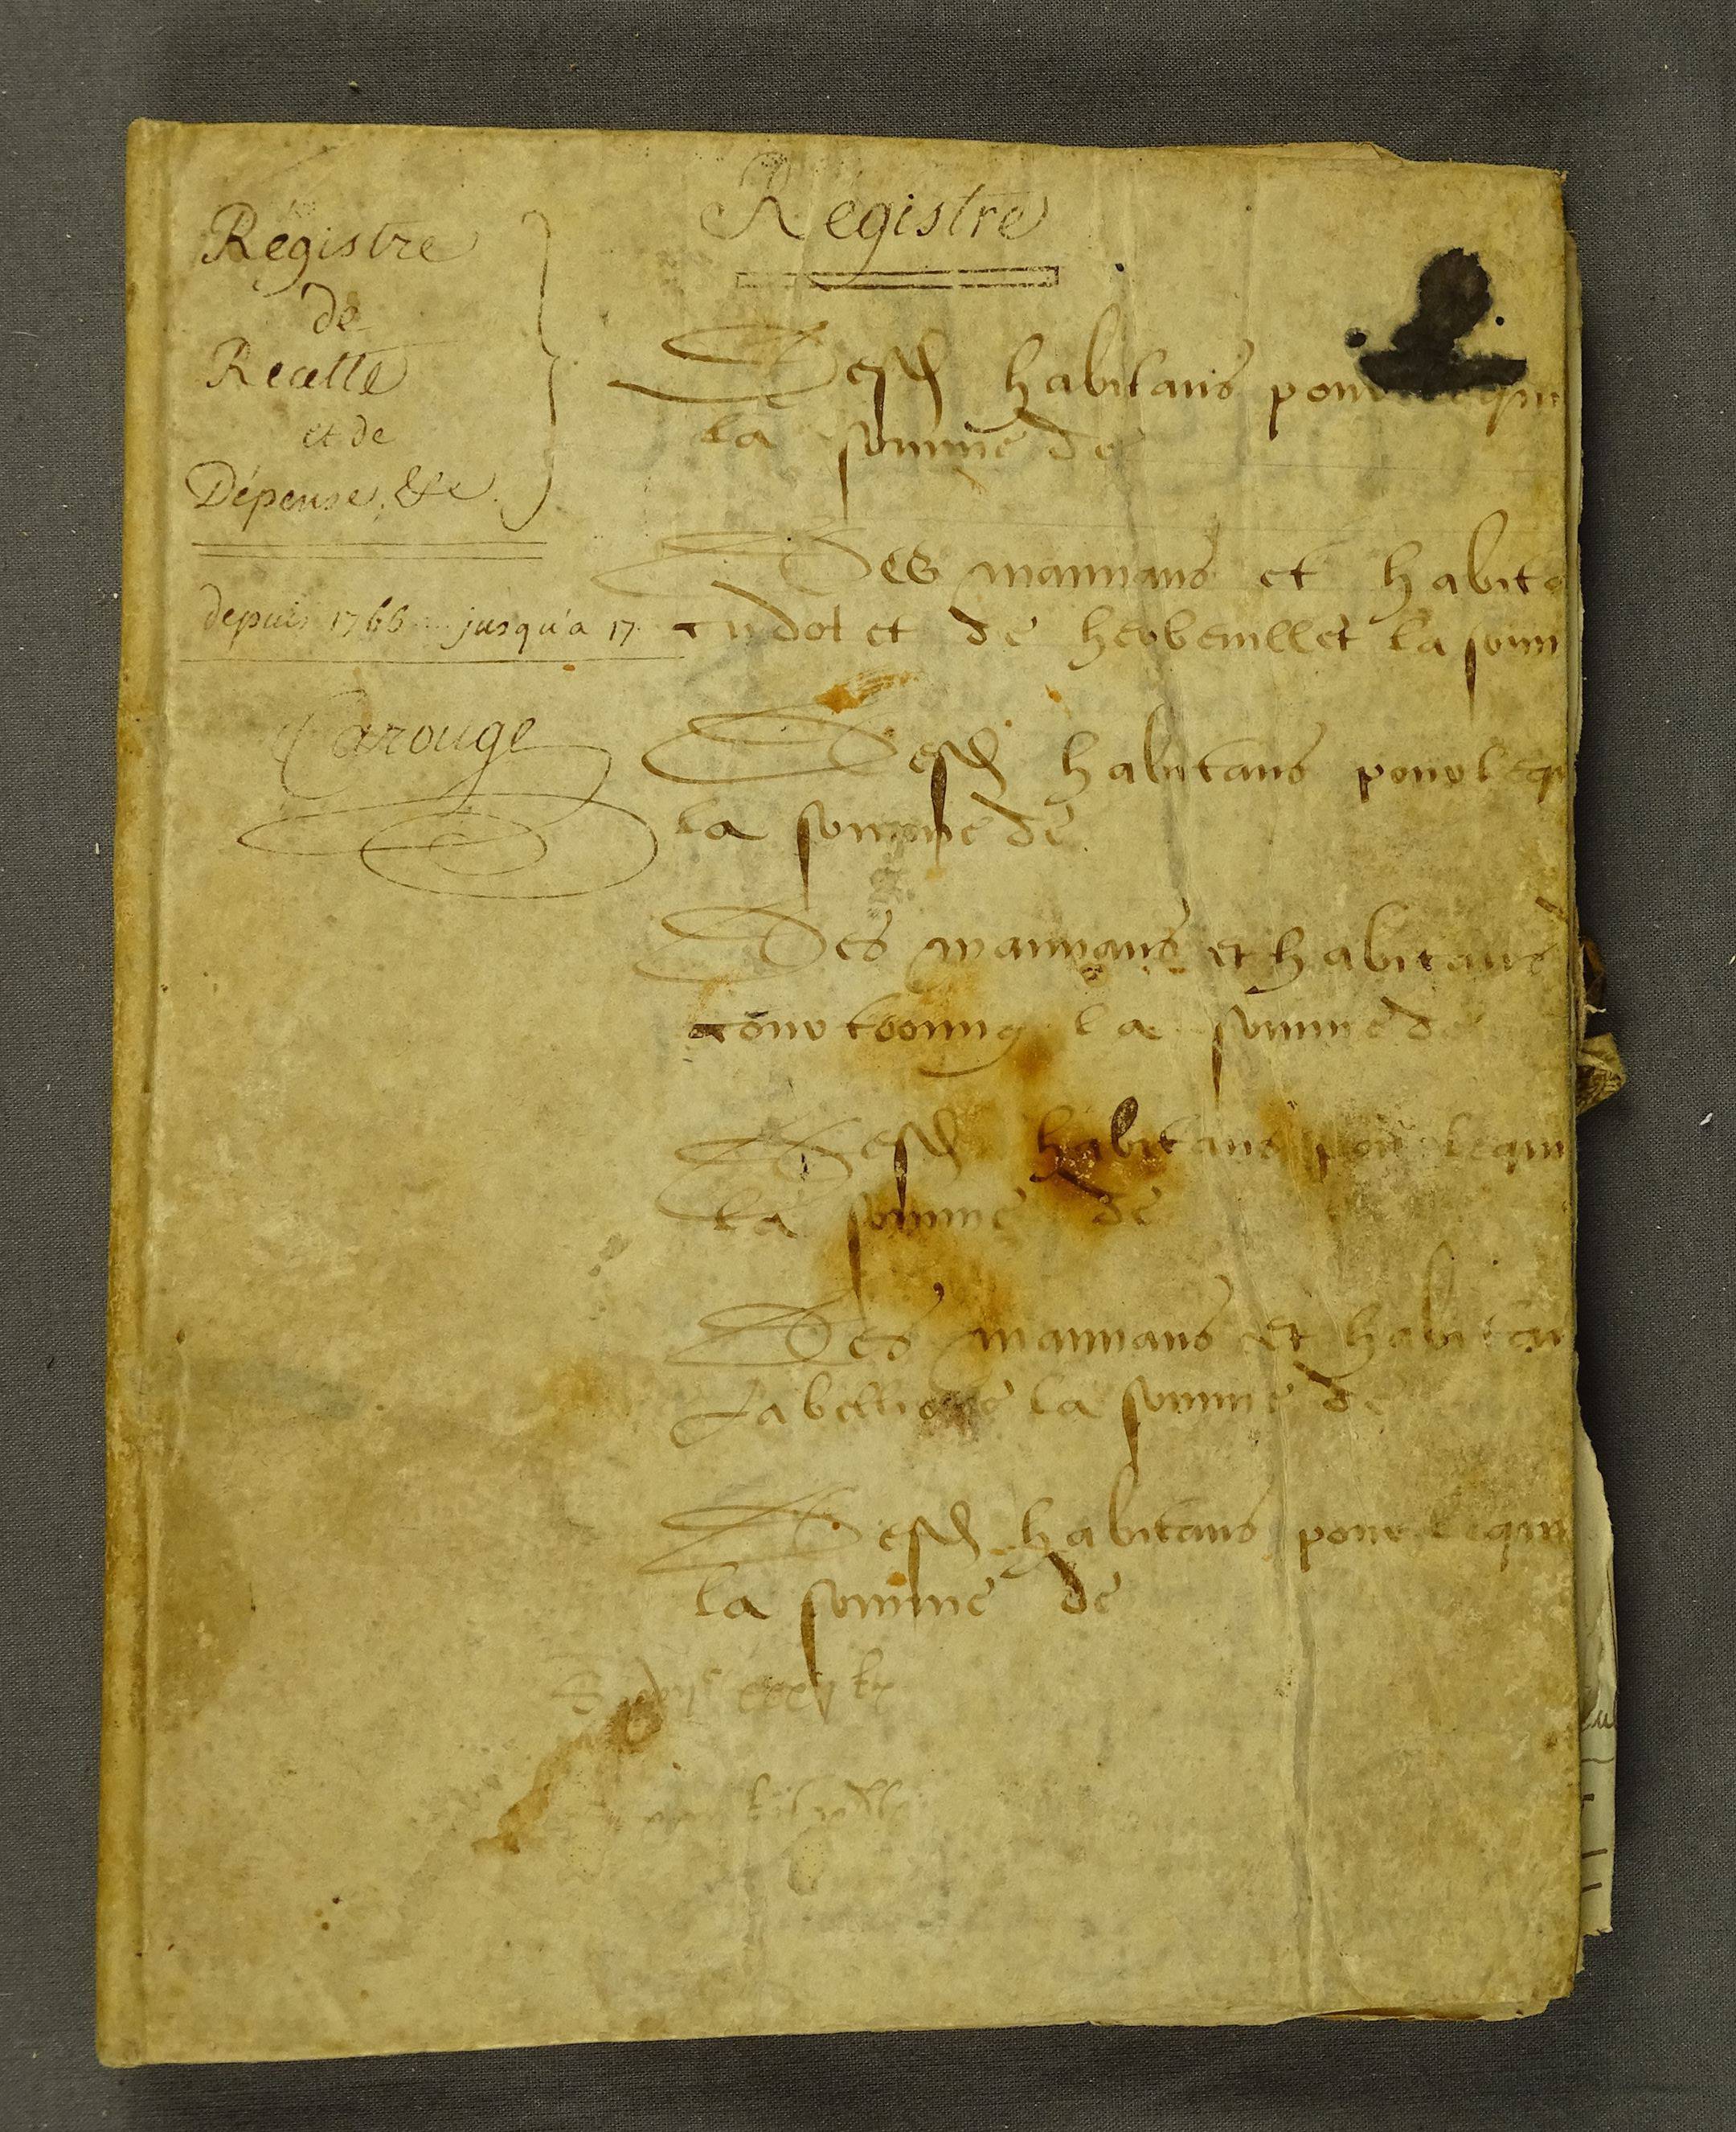 Régistre
de
Recette
et de
Dépense, &c.
depuis 1766 jusqu'a 17
Carouge
Régistre
Desd habitans pour lequi
la somme de
Des mannans et habita
cudot et de herbeuillet la som
Desd habitans pour lequ
la somme de
Des mannans et habitans d
courtboing la somme de
Desd habitans pour lequi
la somme de
Des mannans et habitan
la somme de
Desd habitans pour lequi
la somme de